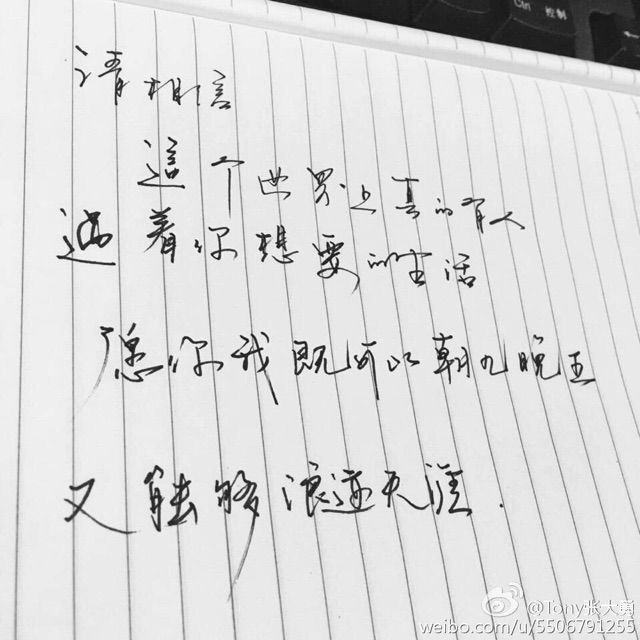 Ctrl 控制
请相信
這个世界上真的有人
過着你想要的生活
愿你我既可以朝九晚五
又能够浪迹天涯.
@Tony张大勇
weibo.com/u/5506791255